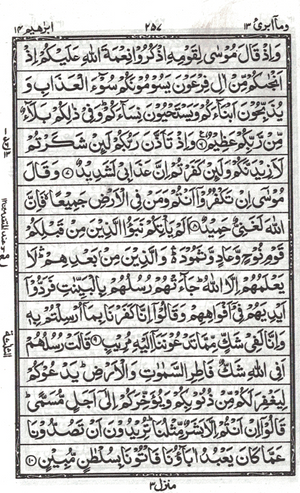 ومآ ابرئ ١٣ ٢٥٧ ابرٰهيم ١٤
وَاِذْ قَالَ مُوْسٰى لِقَوْمِهِ اذْكُرُوْا نِعْمَةَ اللّٰهِ عَلَيْكُمْ اِذْ
اَنْجٰىكُمْ مِّنْ اٰلِ فِرْعَوْنَ يَسُوْمُوْنَكُمْ سُوْٓءَ الْعَذَابِ وَ
يُذَبِّحُوْنَ اَبْنَآءَكُمْ وَيَسْتَحْيُوْنَ نِسَآءَكُمْ ؕ وَفِيْ ذٰلِكُمْ بَلَآءٌ
مِّنْ رَّبِّكُمْ عَظِيْمٌ ۟ وَاِذْ تَاَذَّنَ رَبُّكُمْ لَىِٕنْ شَكَرْتُمْ
لَاَزِيْدَنَّكُمْ وَلَىِٕنْ كَفَرْتُمْ اِنَّ عَذَابِيْ لَشَدِيْدٌ ۟ وَقَالَ
مُوْسٰٓى اِنْ تَكْفُرُوْٓا اَنْتُمْ وَمَنْ فِي الْاَرْضِ جَمِيْعًا ۙ فَاِنَّ
اللّٰهَ لَغَنِيٌّ حَمِيْدٌ ۟ اَلَمْ يَاْتِكُمْ نَبَؤُا الَّذِيْنَ مِنْ قَبْلِكُمْ
قَوْمِ نُوْحٍ وَّعَادٍ وَّثَمُوْدَ ۛؕ وَالَّذِيْنَ مِنْۢ بَعْدِهِمْ ۛؕ لَا
يَعْلَمُهُمْ اِلَّا اللّٰهُ ؕ جَآءَتْهُمْ رُسُلُهُمْ بِالْبَيِّنٰتِ فَرَدُّوْٓا
اَيْدِيَهُمْ فِيْٓ اَفْوَاهِهِمْ وَقَالُوْٓا اِنَّا كَفَرْنَا بِمَآ اُرْسِلْتُمْ بِهٖ
وَاِنَّا لَفِيْ شَكٍّ مِّمَّا تَدْعُوْنَنَآ اِلَيْهِ مُرِيْبٍ ۟ قَالَتْ رُسُلُهُمْ
اَفِي اللّٰهِ شَكٌّ فَاطِرِ السَّمٰوٰتِ وَالْاَرْضِ ؕ يَدْعُوْكُمْ
لِيَغْفِرَ لَكُمْ مِّنْ ذُنُوْبِكُمْ وَيُؤَخِّرَكُمْ اِلٰٓى اَجَلٍ مُّسَمًّى ؕ
قَالُوْٓا اِنْ اَنْتُمْ اِلَّا بَشَرٌ مِّثْلُنَا ؕ تُرِيْدُوْنَ اَنْ تَصُدُّوْنَا
عَمَّا كَانَ يَعْبُدُ اٰبَآؤُنَا فَاْتُوْنَا بِسُلْطٰنٍ مُّبِيْنٍ ۟١٠
منزل ٣